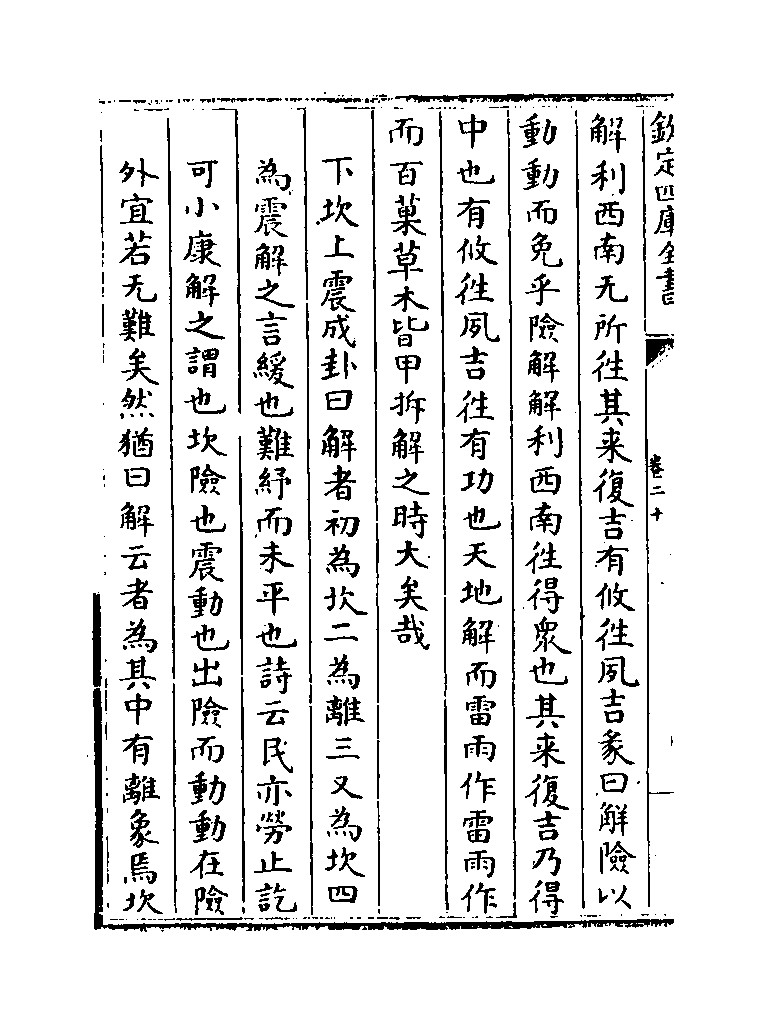 欽定四庫全書
卷二十
解利西南无所徃其来復吉有攸徃夙吉彖曰解險以
動動而免乎險解解利西南徃得衆也其来復吉乃得
中也有攸徃夙吉徃有功也天地解而雷雨作雷雨作
而百菓草木皆甲拆解之時大矣哉
下坎上震成卦曰解者初為坎二為離三又為坎四
為震解之言緩也難紓而未平也詩云民亦勞止訖
可小康解之謂也坎險也震動也出險而動動在險
外宜若无難矣然猶曰解云者為其中有離象焉坎